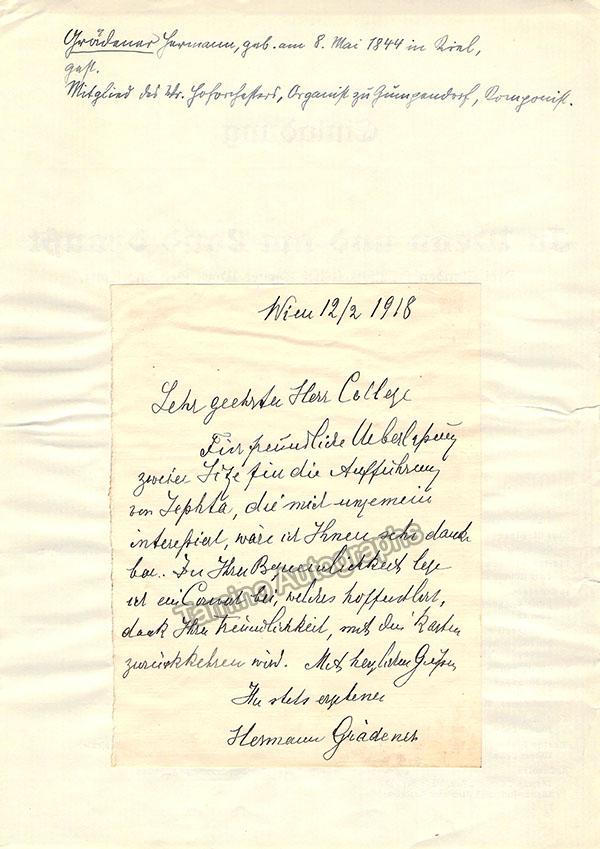 Grädener Hermann, geb. am 8. Mai 1844 in Kiel,
gest.
Mitglied des Wr. Hoforchesters, Organist zu Gumpendorf, Komponist.
Wien 12/2 1918
Sehr geehrter Herr College
Für freundliche Ueberlaßung
zweier Sitze für die Aufführung
von Jephta, die mich ungemein
interessirt, wäre ich Ihnen sehr dank-
bar. Zu Ihrer Bequemlichkeit lege
ich ein Couvert bei, welches hoffentlich,
dank Ihrer Freundlichkeit, mit den Karten
zurückkehren wird. Mit herzlichen Grüßen
Ihr stets ergebener
Hermann Grädener
Tamino Autographs